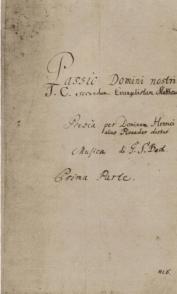 Passio Domini nostri
J. C. secundum Evangelistam Matthaeum
Poesia per Dominum Henrici
alias Picander dictus
Musica di G. S. Bach
Prima Parte.